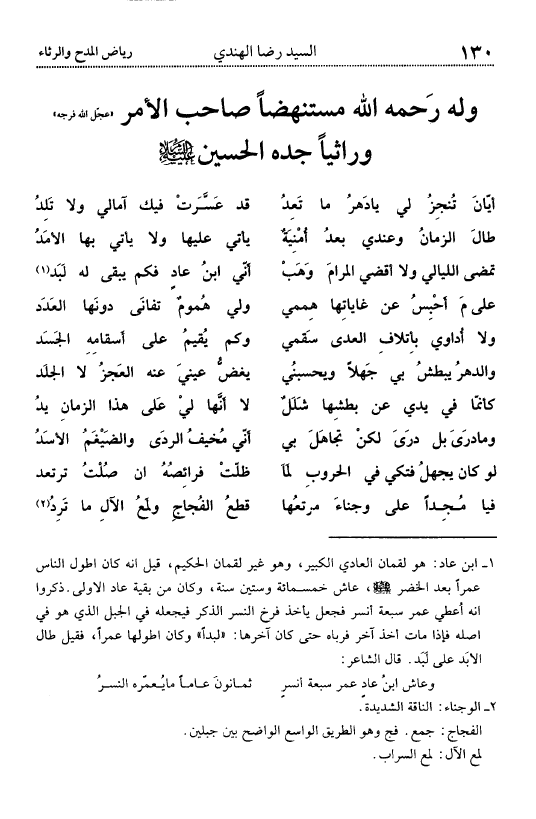 ١٣٠ السيد رضا الهندي رياض المدح والرثاء
وله رَحمه الله مستنهضاً صاحب الأمر «عجّل الله فرجه»
وراثياً جده الحسين عليه السلام
أيّانَ تُنجِزُ لي يادَهرُ ما تَعِدُ قد عَسَّرَتْ فيك آمالي ولا تَلِدُ
طالَ الزمانُ وعندي بعدُ أُمْنِيَةٌ يأتي عليها ولا يأتي بها الأمَدُ
تمضى الليالي ولا أقضي المرامَ وَهَبْ أنّي ابنُ عادٍ فكم يبقى له لَبَد(١)
على مَ أحْبِسُ عن غاياتِها هِممي ولي هُمومٌ تفانَى دونَها العَدَد
ولا أُداوي بإتلافِ العدى سَقمي وكم يُقيمُ على أسقامِهِ الجَسَد
والدهرُ يبطشُ بي جَهلاً ويحسبُني يغضُّ عينيَ عنه العَجزُ لا الجَلَد
كانمّا في يدي عن بطشِها شَلَلٌ لا أنَّها ليْ عَلى هذا الزمانِ يدُ
ومادرَىَ بل درَىَ لكنْ تجاهَلَ بي أنّي مُخيفُ الردَى والضَيْغَمُ الأسَدُ
لو كان يجهلُ فتكي في الحروبِ لمَا ظلّتْ فرائِصُهُ ان صُلْتُ ترتعد
فيا مُجِداً على وجناءَ مرتعُها قطعُ الفُجاجِ ولمعُ الآلِ ما تَرِدُ(٢)
١ـ ابن عاد: هو لقمان العادي الكبير، وهو غير لقمان الحكيم، قيل انه كان اطول الناس
عمراً بعد الخضر عليه السلام، عاش خمسمائة وستين سنة، وكان من بقية عاد الاولى. ذكروا
انه أعطي عمر سبعة أنسر فجعل يأخذ فرخ النسر الذكر فيجعله في الجبل الذي هو في
اصله فإذا مات أخذ آخر فرباه حتى كان آخرها: «لبداً» وكان اطولها عمراً، فقيل طال
الابَد على لَبَد. قال الشاعر:
وعاش ابنُ عادٍ عمر سبعة أنسرٍ ثمانونَ عاماً مايُعمّره النسرُ
٢ـ الوجناء: الناقة الشديدة.
الفجاج: جمع. فج وهو الطريق الواسع الواضح بين جبلين.
لمع الآل: لمع السراب.